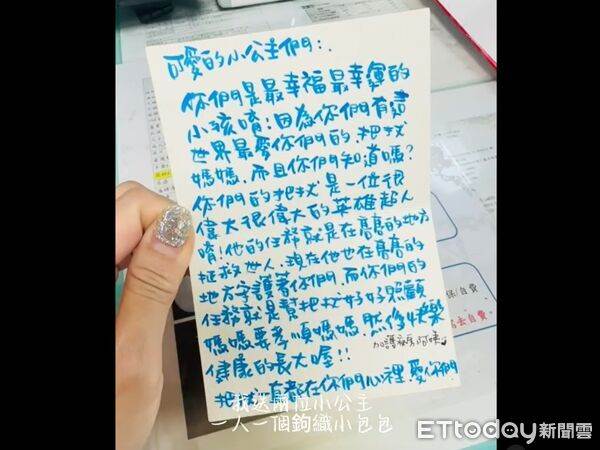 可愛的小公主們:.
你們是最幸福最幸運的
小孩唷!因為你們有這
世界最愛你們的.把拔
媽媽.而且你們知道嗎?
你們的把拔是一位很
偉大很偉大的英雄超人
唷!他的任務就是在高高的地方
拯救世人.現在他也在高高的
地方守護著你們.而你們的
任務就是幫把拔好好照顧
媽媽要孝順媽媽.然後快樂
健康的長大喔!!
加護病房阿姨
把拔一直都在你們心裡.愛你們
我送兩位小公主
一人一個鉤織小包包
保/自費
去自費
ETtoday新聞雲